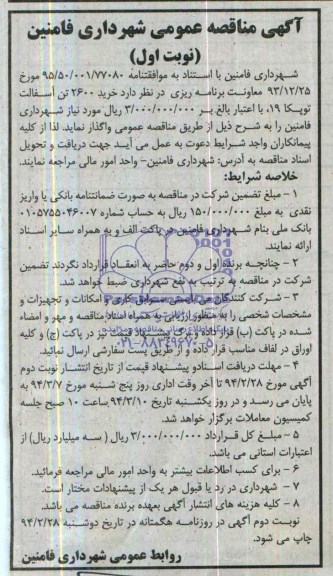 آگهی مناقصه عمومی شهرداری فامنین
(نوبت اول)
شهرداری فامنین با استناد به موافقتنامه ۹۵/۵۰/۰۰۱/۷۷۰۸۰ مورخ
۹۳/۱۲/۲۵ معاونت برنامه ریزی در نظر دارد خرید ۲۶۰۰ تن آسفالت
توپکا ۱۹، با اعتبار بالغ بر ۳/۰۰۰/۰۰۰/۰۰۰ ریال مورد نیاز شهرداری
فامنین را به شرح ذیل از طریق مناقصه عمومی واگذار نماید. لذا از کلیه
پیمانکاران واجد شرایط دعوت به عمل می آید جهت دریافت و تحویل
اسناد مناقصه به آدرس: شهرداری فامنین- واحد امور مالی مراجعه نمایند.
خلاصه شرایط:
۱ - مبلغ تضمین شرکت در مناقصه به صورت ضمانتنامه بانکی یا واریز
نقدی به مبلغ ۱۵۰/۰۰۰/۰۰۰ ریال به حساب شماره ۰۱۰۵۷۵۵۰۴۶۰۰۷
بانک ملی بنام شهرداری فامنین در پاکت الف و به همراه سایر اسناد
ارائه نمایند.
۲ - چنانچه برنده اول و دوم حاضر به انعقاد قرارداد نگردند تضمین
شرکت در مناقصه به ترتیب به نفع شهرداری ضبط خواهد شد.
۳ - شرکت کنندگان می بایستی سوابق کاری و امکانات و تجهیزات و
مشخصات شخصی را به منظور ارزیابی به همراه اسناد مناقصه و مهر و امضاء
شده در پاکت (ب) قرارداده و برگ پیشنهاد قیمت نیز در پاکت (ج) و کلیه
اوراق در لفاف مناسب قرار داده و از طریق پست سفارشی ارسال نمائید.
۴ - مهلت دریافت اسناد و پیشنهاد قیمت از تاریخ انتشار نوبت دوم
آگهی مورخ ۹۴/۲/۲۸ تا آخر وقت اداری روز پنج شنبه مورخ ۹۴/۳/۷ به
پایان می رسد و در روز یکشنبه تاریخ ۹۴/۳/۱۰ ساعت ۱۰ صبح جلسه
کمیسیون معاملات برگزار خواهد شد.
۵ - مبلغ کل قرارداد ۳/۰۰۰/۰۰۰/۰۰۰ ریال ( سه میلیارد ریال) از
اعتبارات استانی می باشد.
۶ - برای کسب اطلاعات بیشتر به واحد امور مالی مراجعه فرمائید.
۷ - شهرداری در رد یا قبول هر یک از پیشنهادات مختار است.
۸ - کلیه هزینه های انتشار آگهی بعهده برنده مناقصه می باشد.
نوبت دوم آگهی در روزنامه هگمتانه در تاریخ دوشنبه ۹۴/۲/۲۸
چاپ می شود.
روابط عمومی شهرداری فامنین